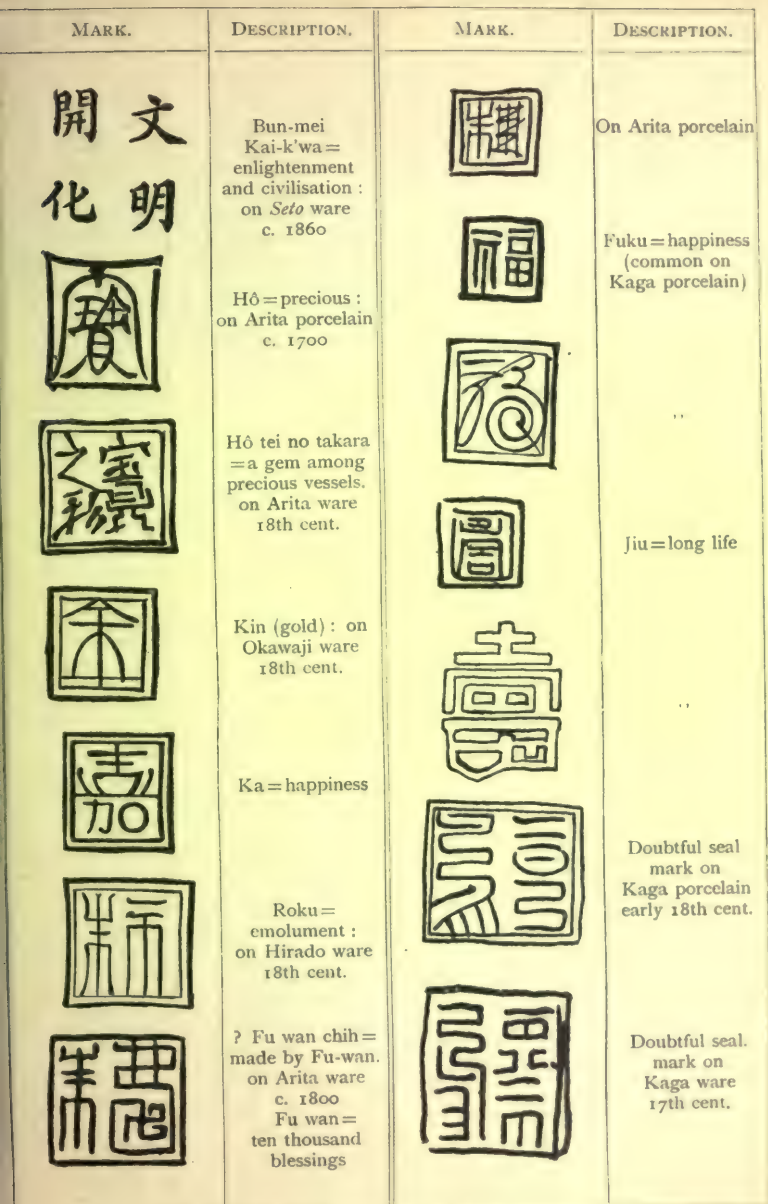 MARK.
DESCRIPTION.
MARK.
DESCRIPTION.
文
明
開
化
Bun-mei
Kai-k'wa =
enlightenment
and civilisation :
on Seto ware
c. 1860
寶
Hô = precious :
on Arita porcelain
c. 1700
Hô tei no takara
= a gem among
precious vessels.
on Arita ware
18th cent.
金
Kin (gold) : on
Okawaji ware
18th cent.
嘉
Ka = happiness
Roku =
emolument :
on Hirado ware
18th cent.
? Fu wan chih =
made by Fu-wan.
on Arita ware
c. 1800
Fu wan =
ten thousand
blessings
On Arita porcelain
福
Fuku = happiness
(common on
Kaga porcelain)
,,
Jiu = long life
壽
,,
Doubtful seal
mark on
Kaga porcelain
early 18th cent.
Doubtful seal.
mark on
Kaga ware
17th cent.